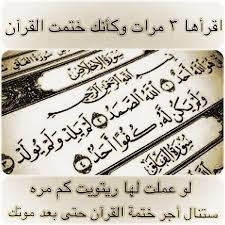 اقرأها ٣ مرات وكأنك ختمت القرآن
سورة الإخلاص
قل هو الله أحد
الله الصمد لم يلد ولم يولد
ولم يكن له كفوا أحد
سورة الفلق
لو عملت لها ريتويت كم مره
ستنال أجر ختمة القرآن حتى بعد موتك